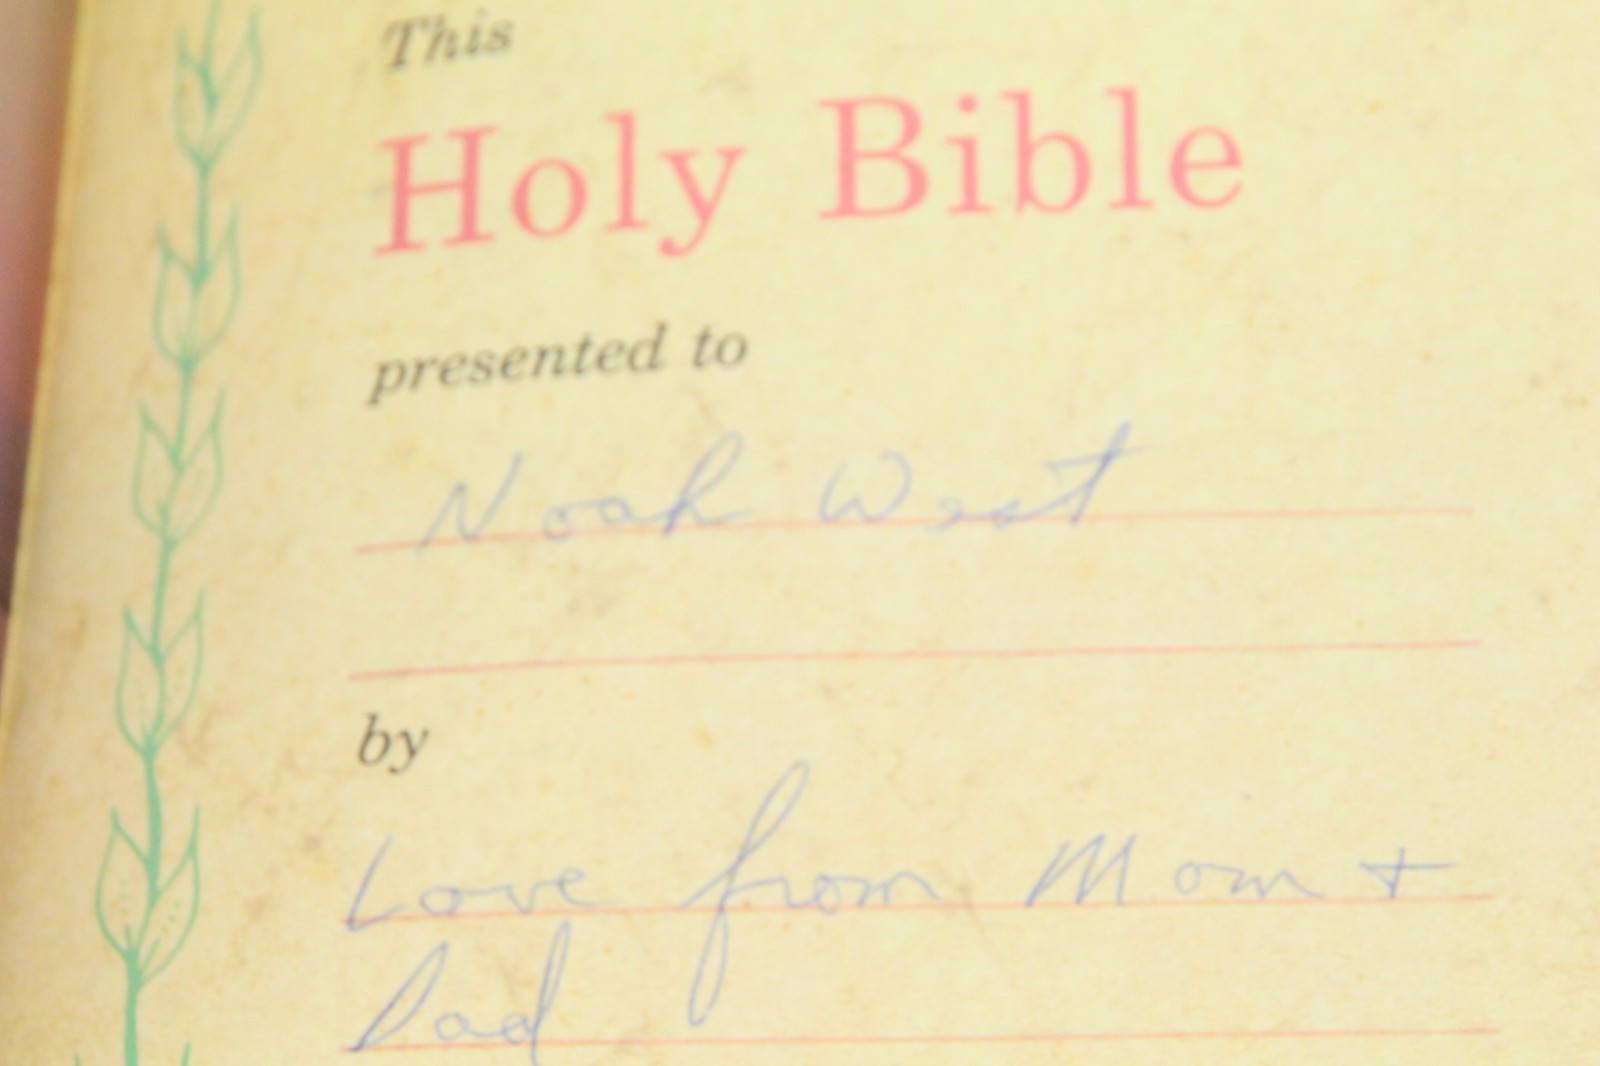 This
Holy Bible
presented to
Noah West
by
Love from Mom +
Dad